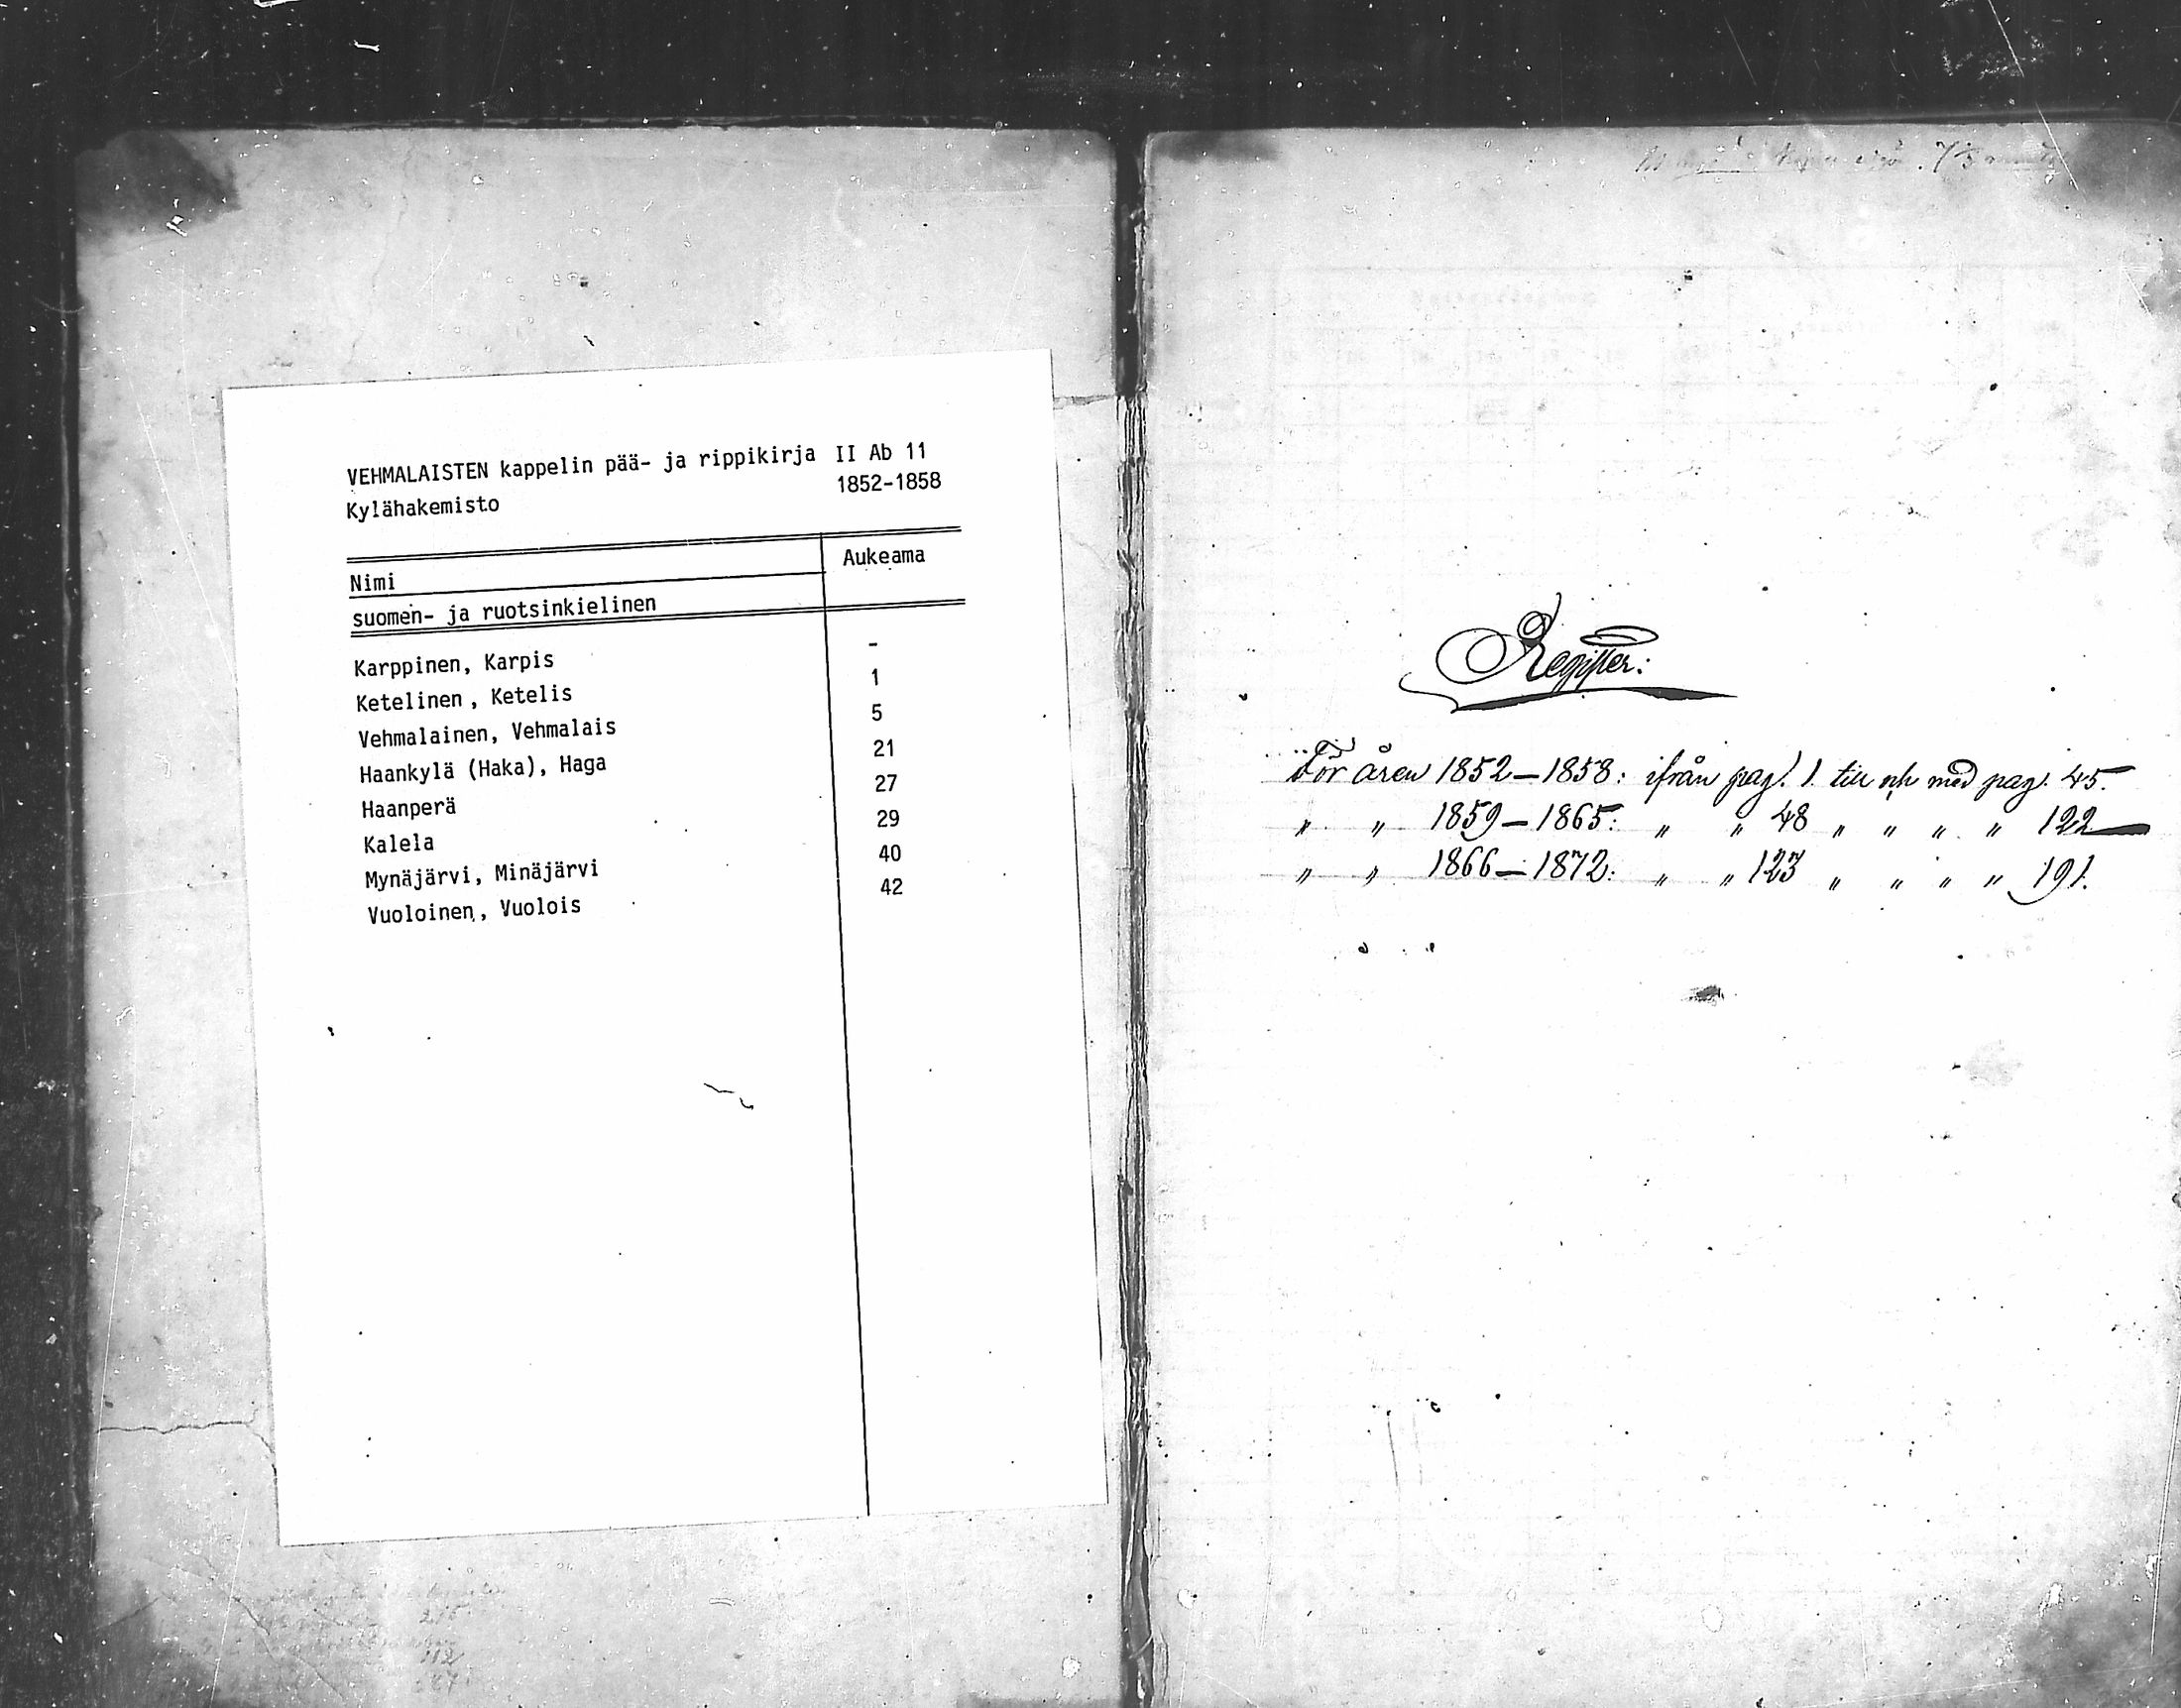 VEHMALAISTEN kappelin pää- ja rippikirja II Ab 11
Kylähakemisto 1852-1858
Nimi Aukeama
suomen- ja ruotsinkielinen
Karppinen, Karpis -
Ketelinen, Ketelis 1
Vehmalainen, Vehmalais 5
Haankylä (Haka), Haga 21
Haanperä 27
Kalela 29
Mynäjärvi, Minäjärvi 40
Vuoloinen, Vuolois 42
Register:
För åren 1852–1858: ifrån pag. 1. till och med pag. 45.
" " 1859–1865: " " 48 " " " " 122
" " 1866–1872: " " 123 " " " " 191.